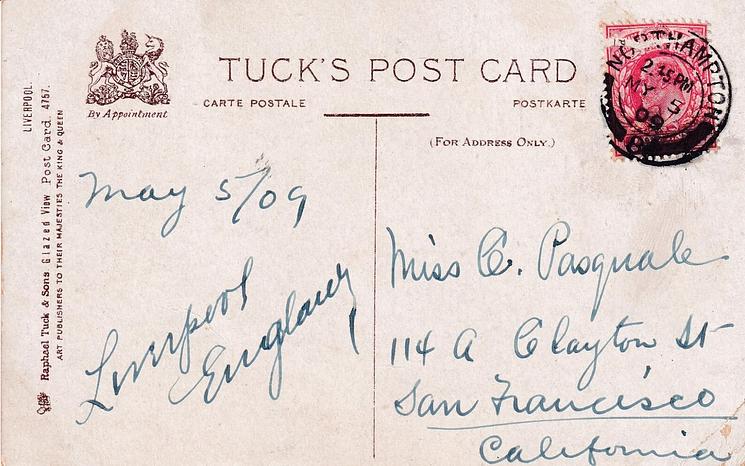 TUCK'S POST CARD
CARTE POSTALE
POSTKARTE
By Appointment
(FOR ADDRESS ONLY.)
NORTHAMPTON
2.45PM
MY 5
09
LIVERPOOL.
Raphael Tuck & Sons Glazed View Post Card 4757.
ART PUBLISHERS TO THEIR MAJESTIES THE KING & QUEEN
May 5/09
Liverpool
England
Miss C. Pasquale
114 A Clayton St
San Francisco
California